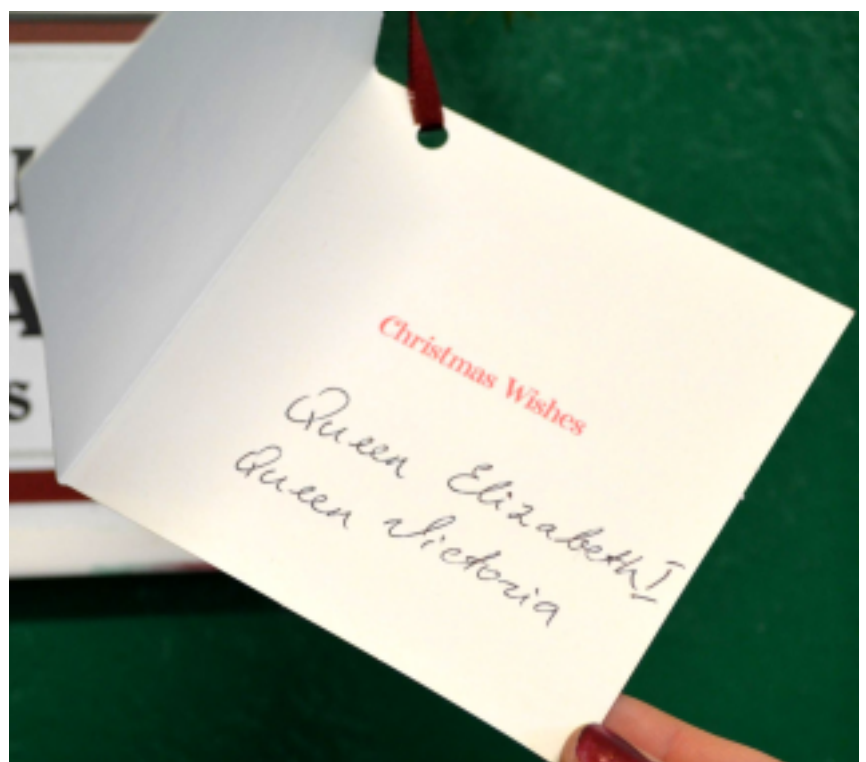 Christmas Wishes
Queen Elizabeth I
Queen Victoria